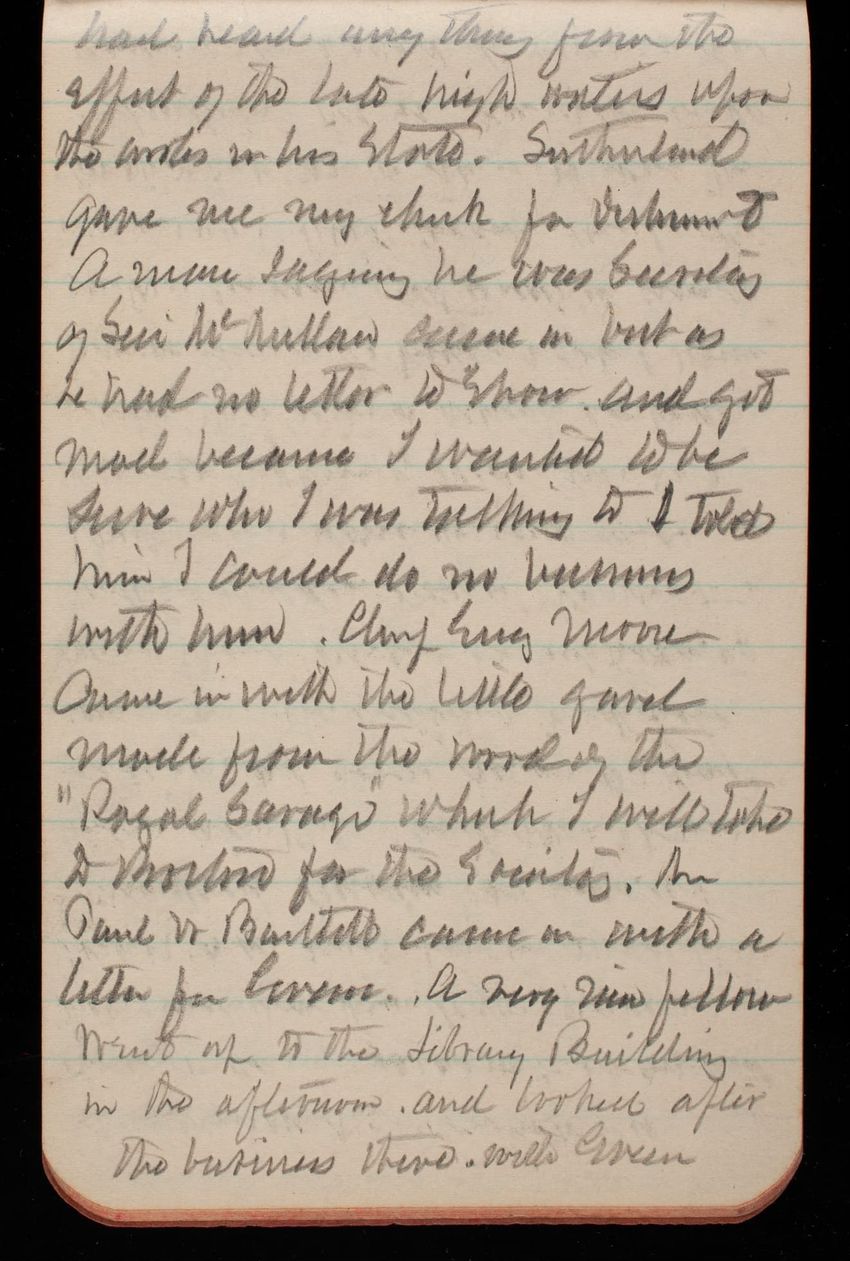 had heard any thing from the
effect of the late high waters upon
the works in his State. Sutherland
gave me my check for
A man saying he was Secretary
of Sen McMillan came in but as
he had no letter to show. and got
mad because I wanted to be
sure who I was talking to I told
him I could do no business
with him. Chief Eng Moore
Came in with the little gavel
made from the wood of the
"Royal Savage" which I will take
to for the Society. Mr
Paul W Bartlett came in with a
letter for Green. A very nice fellow
Went up to the Library Building
in the afternoon. and looked after
the business there. with Green